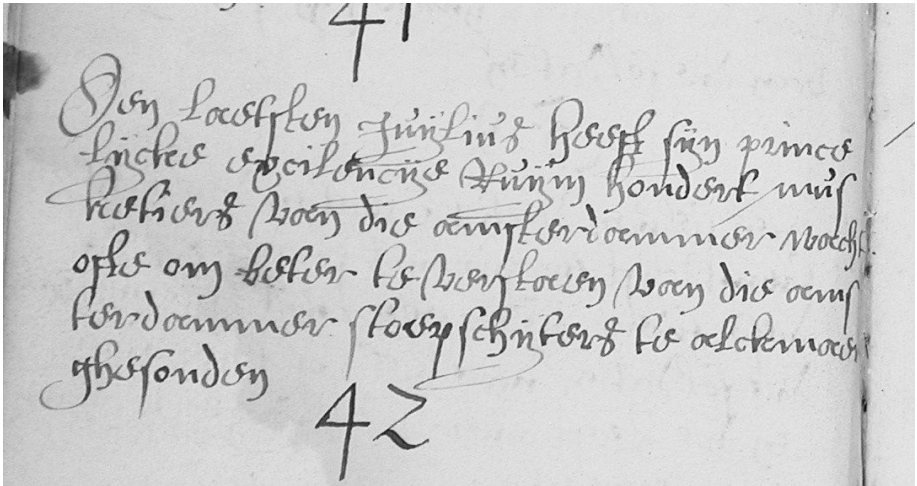 41
Den laetsten Juÿlius heeft sijn prince
lÿcke excilencije Ruÿm hondert mus
ketiers van die amsterdammer wacht
ofte om beter te verstaen van die ams
terdammer stoepschÿters te alckmaer
ghesonden
42